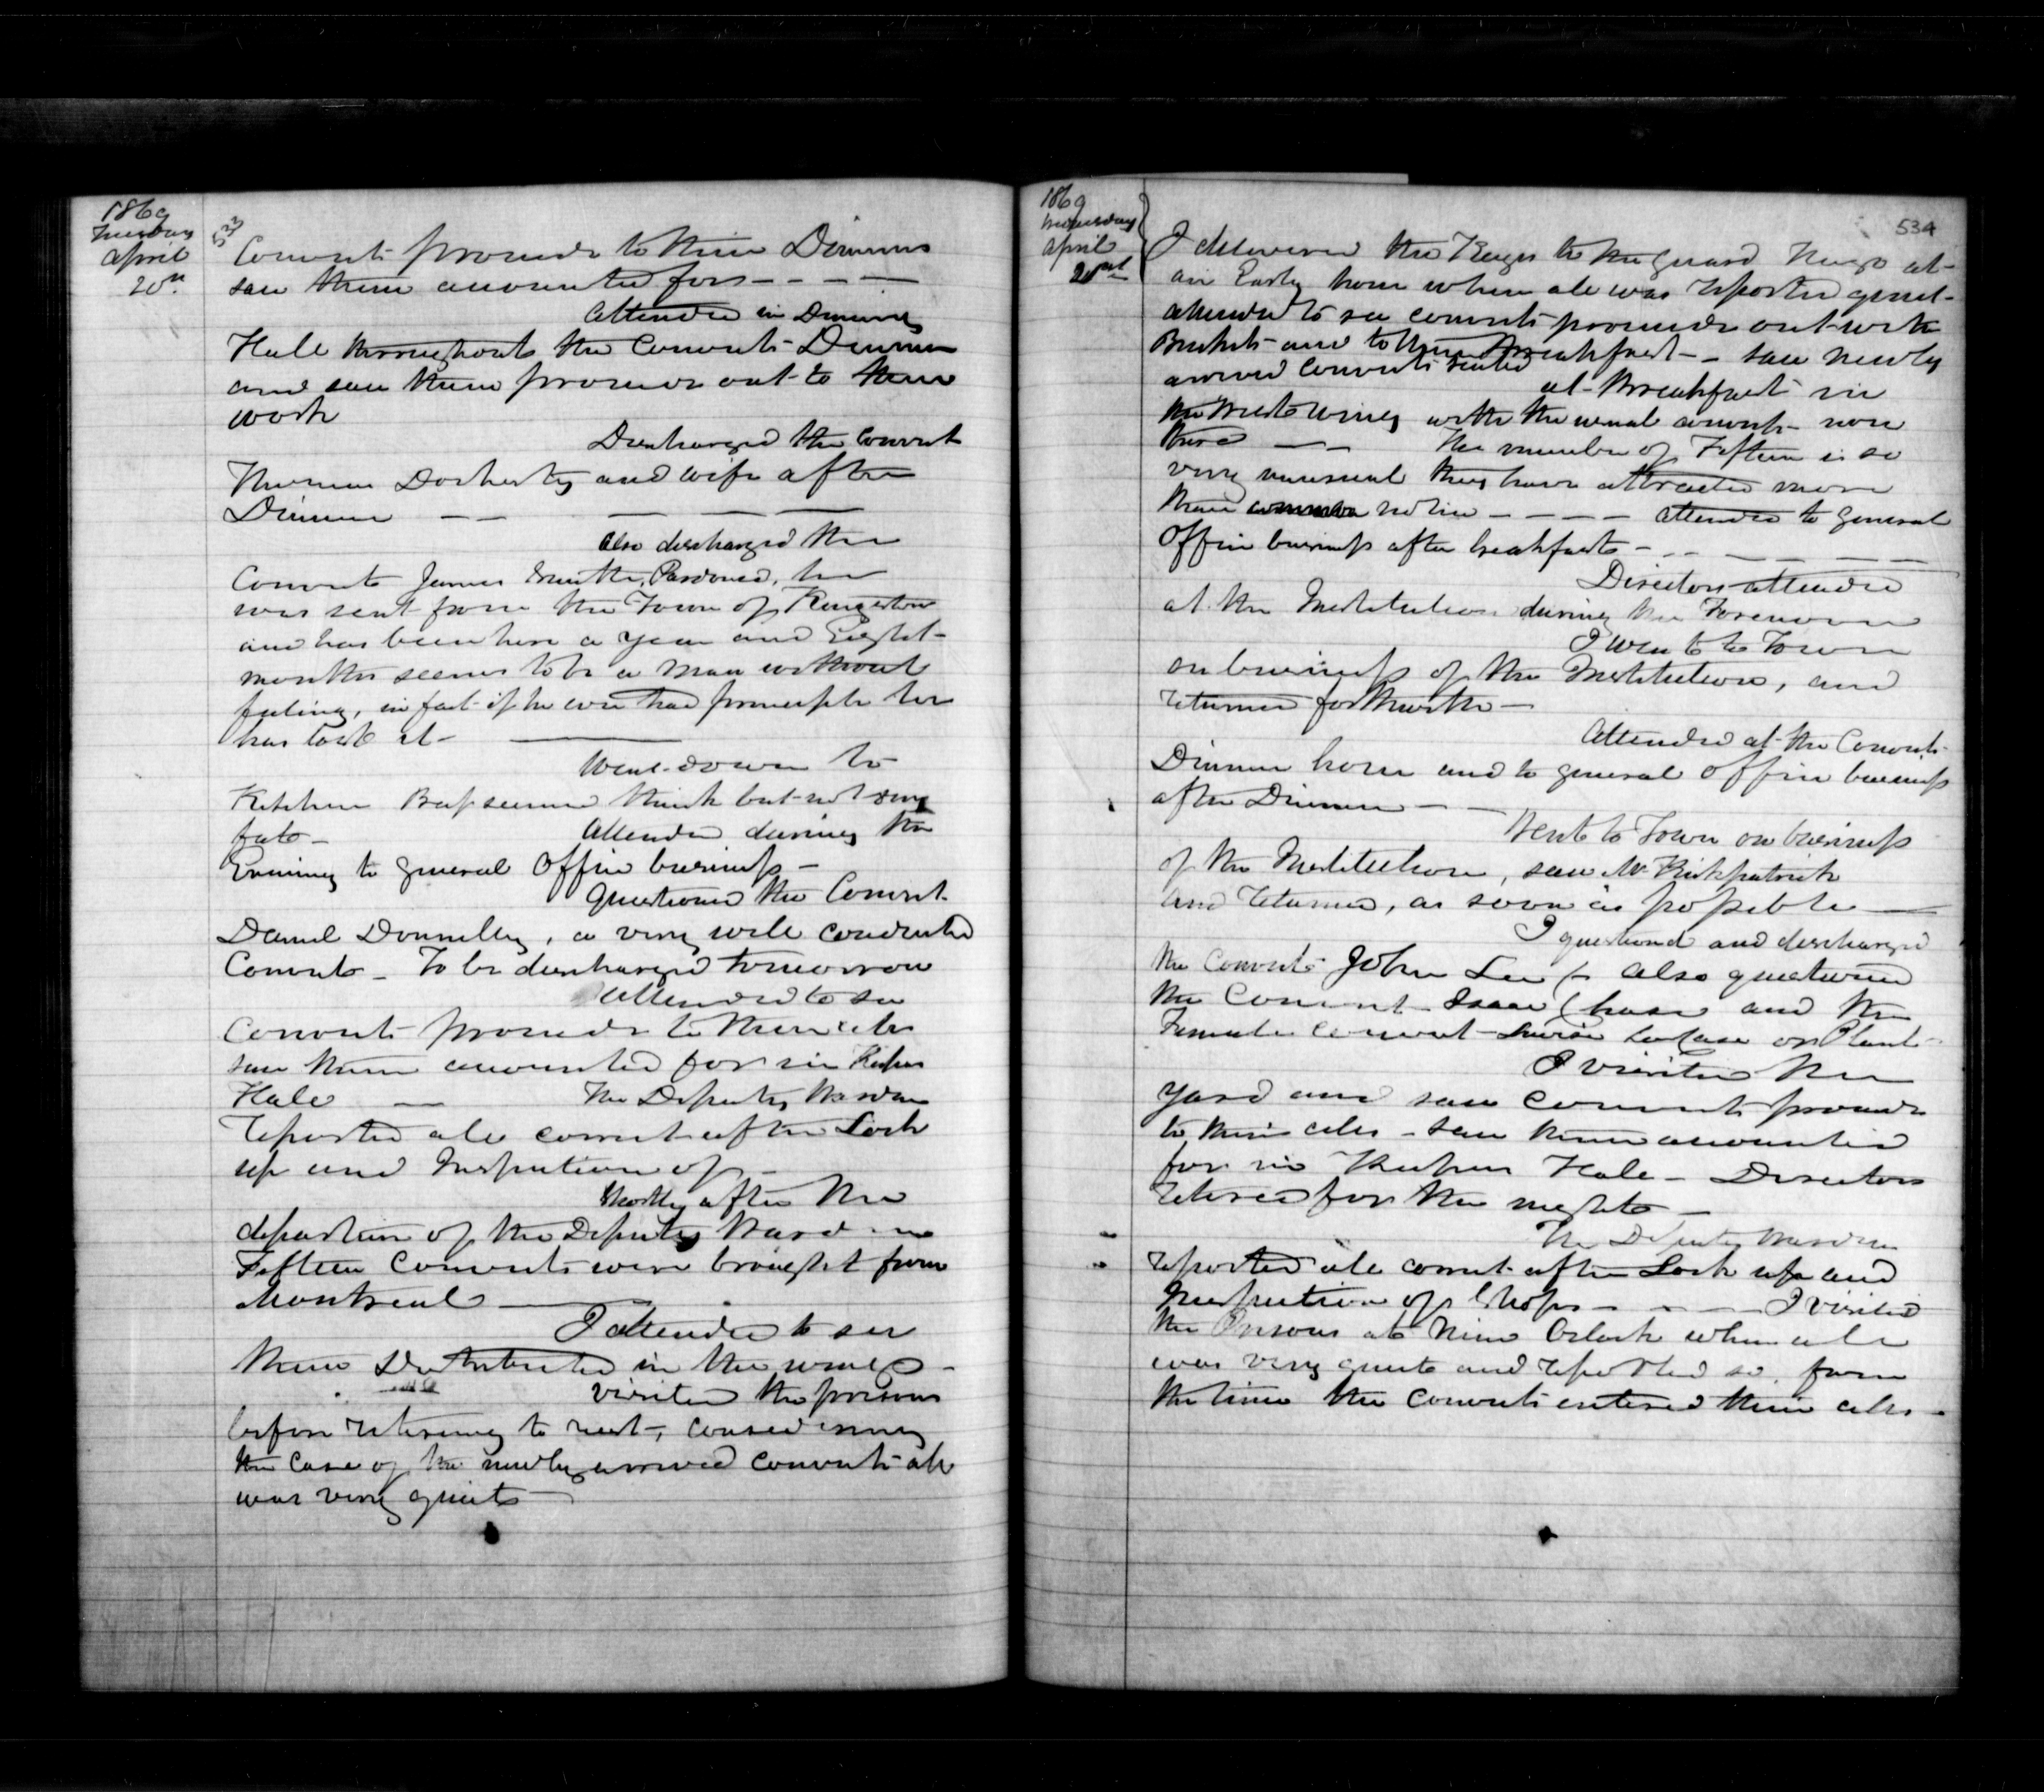 1869
Tuesday
April
20th
533
Convicts proceed to their Dinners
saw them accounted for - - - -
Attended in Dining
Hall throughout the Convicts Dinner
and saw them proceed out to their
work
Discharged the Convict
Dorherty and wife after
Dinner - - - - -
Also discharged the
Convict James Smith, Pardoned, he
was sent from the Town of Kingston
and has been here a year and Eight
months seems to be a man without
feeling, in fact if he ever had principle he
has lost it -
Went down to
Kitchen Beef seemed thick but not very
fat -
Attended during the
Evening to general Office business -
Questioned the Convict
Daniel Donnelly, a very well conducted
Convict - To be discharged tomorrow
Attended to see
Convicts proceed to their cells
saw them accounted for in Keepers
Hall -
The Deputy Warden
reported all correct after Lock
up and Inspection of -
Shortly after the
departure of the Deputy Warden
Fifteen Convicts were brought from
Montreal -
I attended to see
them Distributed in the wings -
Visited the prisons
before retiring to rest, considering
the case of the newly arrived convicts all
was very quiet -
1869
Wednesday
April
534
I delivered the Keys to the guard at
an Early hour when all was reported quiet -
attended to see convicts proceed out with
Buckets and to their Breakfast - saw newly
arrived Convicts seated
at Breakfast in
the West wing with the usual convicts now
there - The number of Fifteen is so
very unusual they have attracted more
than common notice - - - - Attended to general
Office business after breakfast -
Directors attended
at the Institution during the Forenoon
I went to Town
on business of the Institution, and
returned forthwith -
Attended at the Convicts
Dinner hour and to general Office business
after Dinner -
Went to Town on business
of the Institution, saw Mr Kirkpatrick
and returned, as soon as possible -
I questioned and discharged
the Convict John Lee also questioned
the Convict Isaac Chase and the
Female Convict
I visited the
yard and saw Convicts proceed
to their cells - saw them accounted
for in Keepers Hall - Directors
retired for the night -
The Deputy Warden
reported all correct after Lock up and
Inspection of Shops - - - I visited
the Prisons at Nine Oclock when all
was very quiet and reported so, from
the time the Convicts entered their cells -